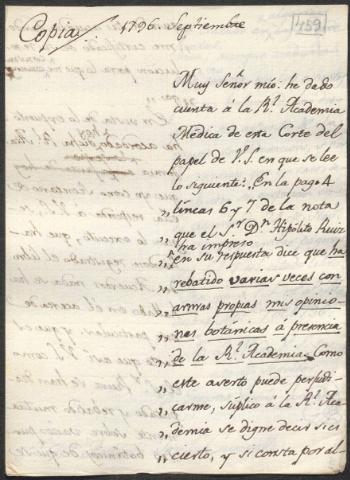 Copia/. 1796 Septiembre
459
Muy Señor. mío: he dado
cuenta á la Rl. Academia
Medica de esta Corte del
papel de V.S. en que se lee
lo siguiente: „En la pag.a 4
„ lineas 6 y 7 de la nota
„ que el Sr. Dn. Hipólito Ruiz
ha impreso
„ en su respuesta dice que ha
„ rebatido varias veces con
„ armas propias mis opinio-
„ nes botanicas á presencia
„ de la Rl. Academia. Como
„ este aserto puede perjudi-
„ carme, suplico á la Rl. Aca
„ demia se digne decir si es
„ cierto, y si consta por al-